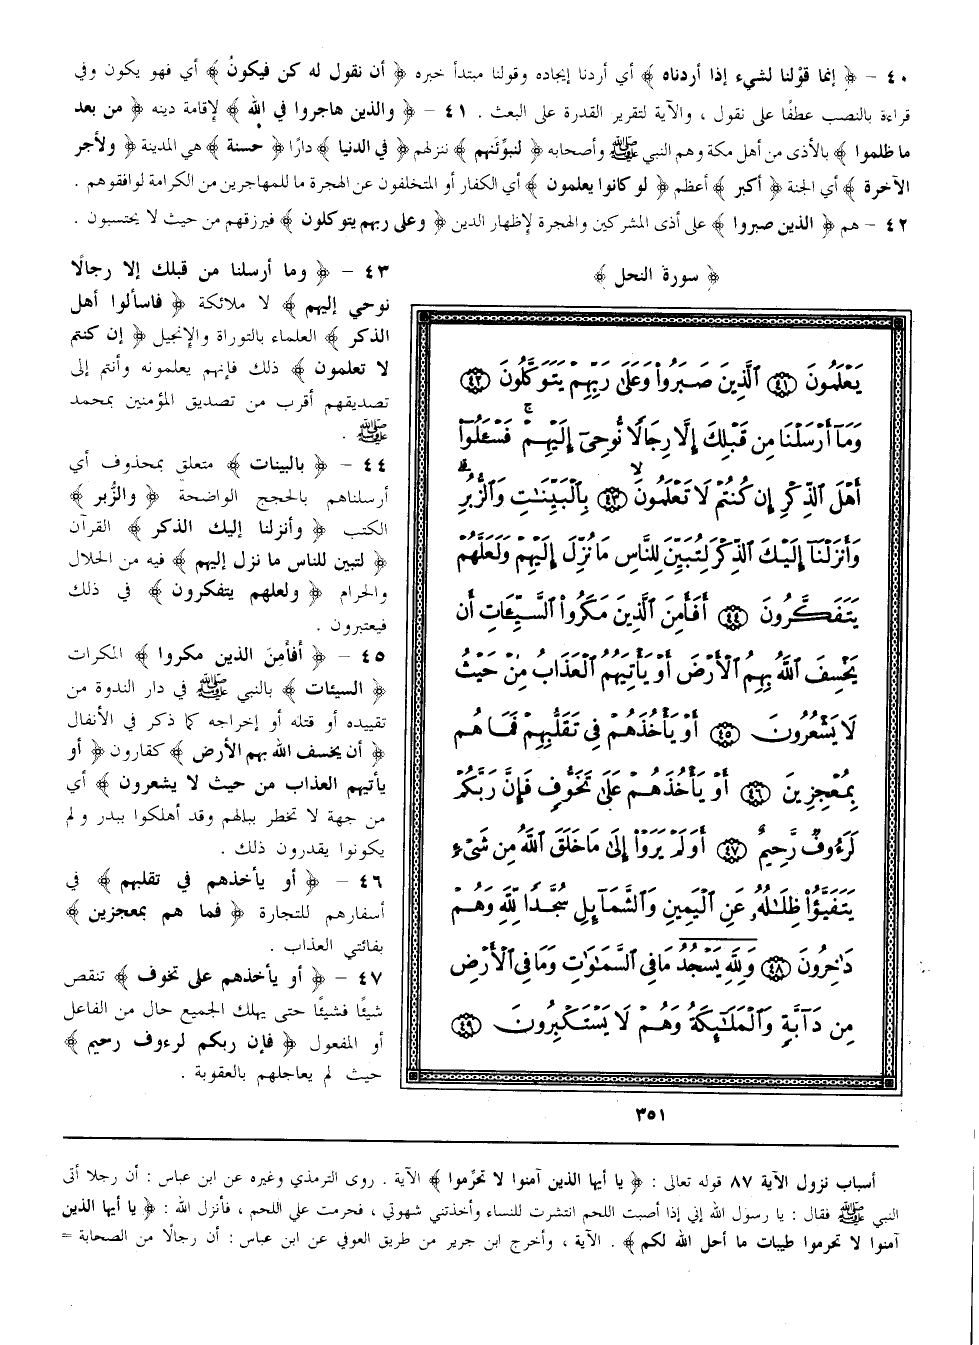 ٤٠ – ﴿ إنما قوْلنا لشيء إذا أردناه ﴾ أي أردنا إيجاده وقولنا مبتدأ خبره ﴿ أن نقول له كن فيكونُ ﴾ أي فهو يكون وفي
قراءة بالنصب عطفًا على نقول ، والآية لتقرير القدرة على البعث . ٤١ – ﴿ والذين هاجروا في الله ﴾ لإقامة دينه ﴿ من بعد
ما ظلموا ﴾ بالأذى من أهل مكة وهم النبي ﷺ وأصحابه ﴿ لنبوِّئنهم ﴾ ننزلهم ﴿ في الدنيا ﴾ دارًا ﴿ حسنة ﴾ هي المدينة ﴿ ولأجر
الآخرة ﴾ أي الجنة ﴿ أكبر ﴾ أعظم ﴿ لو كانوا يعلمون ﴾ أي الكفار أو المتخلفون عن الهجرة ما للمهاجرين من الكرامة لوافقوهم .
٤٢ – هم ﴿ الذين صبروا ﴾ على أذى المشركين والهجرة لإظهار الدين ﴿ وعلى ربهم يتوكلون ﴾ فيرزقهم من حيث لا يحتسبون .
﴿ سورة النحل ﴾
يَعْلَمُونَ ﴿٤١﴾ ٱلَّذِينَ صَبَرُوا۟ وَعَلَىٰ رَبِّهِمْ يَتَوَكَّلُونَ ﴿٤٢﴾
وَمَآ أَرْسَلْنَا مِن قَبْلِكَ إِلَّا رِجَالًا نُّوحِىٓ إِلَيْهِمْ ۚ فَسْـَٔلُوٓا۟
أَهْلَ ٱلذِّكْرِ إِن كُنتُمْ لَا تَعْلَمُونَ ﴿٤٣﴾ بِٱلْبَيِّنَـٰتِ وَٱلزُّبُرِ ۗ
وَأَنزَلْنَآ إِلَيْكَ ٱلذِّكْرَ لِتُبَيِّنَ لِلنَّاسِ مَا نُزِّلَ إِلَيْهِمْ وَلَعَلَّهُمْ
يَتَفَكَّرُونَ ﴿٤٤﴾ أَفَأَمِنَ ٱلَّذِينَ مَكَرُوا۟ ٱلسَّيِّـَٔاتِ أَن
يَخْسِفَ ٱللَّهُ بِهِمُ ٱلْأَرْضَ أَوْ يَأْتِيَهُمُ ٱلْعَذَابُ مِنْ حَيْثُ
لَا يَشْعُرُونَ ﴿٤٥﴾ أَوْ يَأْخُذَهُمْ فِى تَقَلُّبِهِمْ فَمَا هُم
بِمُعْجِزِينَ ﴿٤٦﴾ أَوْ يَأْخُذَهُمْ عَلَىٰ تَخَوُّفٍ فَإِنَّ رَبَّكُمْ
لَرَءُوفٌ رَّحِيمٌ ﴿٤٧﴾ أَوَلَمْ يَرَوْا۟ إِلَىٰ مَا خَلَقَ ٱللَّهُ مِن شَىْءٍ
يَتَفَيَّؤُا۟ ظِلَـٰلُهُۥ عَنِ ٱلْيَمِينِ وَٱلشَّمَآئِلِ سُجَّدًا لِّلَّهِ وَهُمْ
دَٰخِرُونَ ﴿٤٨﴾ وَلِلَّهِ يَسْجُدُ مَا فِى ٱلسَّمَـٰوَٰتِ وَمَا فِى ٱلْأَرْضِ
مِن دَآبَّةٍ وَٱلْمَلَـٰٓئِكَةُ وَهُمْ لَا يَسْتَكْبِرُونَ ﴿٤٩﴾
٣٥١
٤٣ – ﴿ وما أرسلنا من قبلك إلا رجالًا
نوحي إليهم ﴾ لا ملائكة ﴿ فاسألوا أهل
الذكر ﴾ العلماء بالتوراة والإنجيل ﴿ إن كنتم
لا تعلمون ﴾ ذلك فإنهم يعلمونه وأنتم إلى
تصديقهم أقرب من تصديق المؤمنين بمحمد
ﷺ .
٤٤ – ﴿ بالبينات ﴾ متعلق بمحذوف أي
أرسلناهم بالحجج الواضحة ﴿ والزُّبر ﴾
الكتب ﴿ وأنزلنا إليك الذكر ﴾ القرآن
﴿ لتبين للناس ما نزل إليهم ﴾ فيه من الحلال
والحرام ﴿ ولعلهم يتفكرون ﴾ في ذلك
فيعتبرون .
٤٥ – ﴿ أفأمِنَ الذين مكروا ﴾ المكرات
﴿ السيئات ﴾ بالنبي ﷺ في دار الندوة من
تقييده أو قتله أو إخراجه كما ذكر في الأنفال
﴿ أن يخسف الله بهم الأرض ﴾ كقارون ﴿ أو
يأتيهم العذاب من حيث لا يشعرون ﴾ أي
من جهة لا تخطر ببالهم وقد أهلكوا ببدر ولم
يكونوا يقدرون ذلك .
٤٦ – ﴿ أو يأخذهم في تقلبهم ﴾ في
أسفارهم للتجارة ﴿ فما هم بمعجزين ﴾
بفائتي العذاب .
٤٧ – ﴿ أو يأخذهم على تخوف ﴾ تنقص
شيئًا فشيئًا حتى يهلك الجميع حال من الفاعل
أو المفعول ﴿ فإن ربكم لرءوف رحيم ﴾
حيث لم يعاجلهم بالعقوبة .
أسباب نزول الآية ٨٧ قوله تعالى : ﴿ يا أيها الذين آمنوا لا تحرِّموا ﴾ الآية . روى الترمذي وغيره عن ابن عباس : أن رجلا أتى
النبي ﷺ فقال : يا رسول الله إني إذا أصبت اللحم انتشرت للنساء وأخذتني شهوتي ، فحرمت علي اللحم ، فأنزل الله : ﴿ يا أيها الذين
آمنوا لا تحرموا طيبات ما أحل الله لكم ﴾ . الآية ، وأخرج ابن جرير من طريق العوفي عن ابن عباس : أن رجالًا من الصحابة =